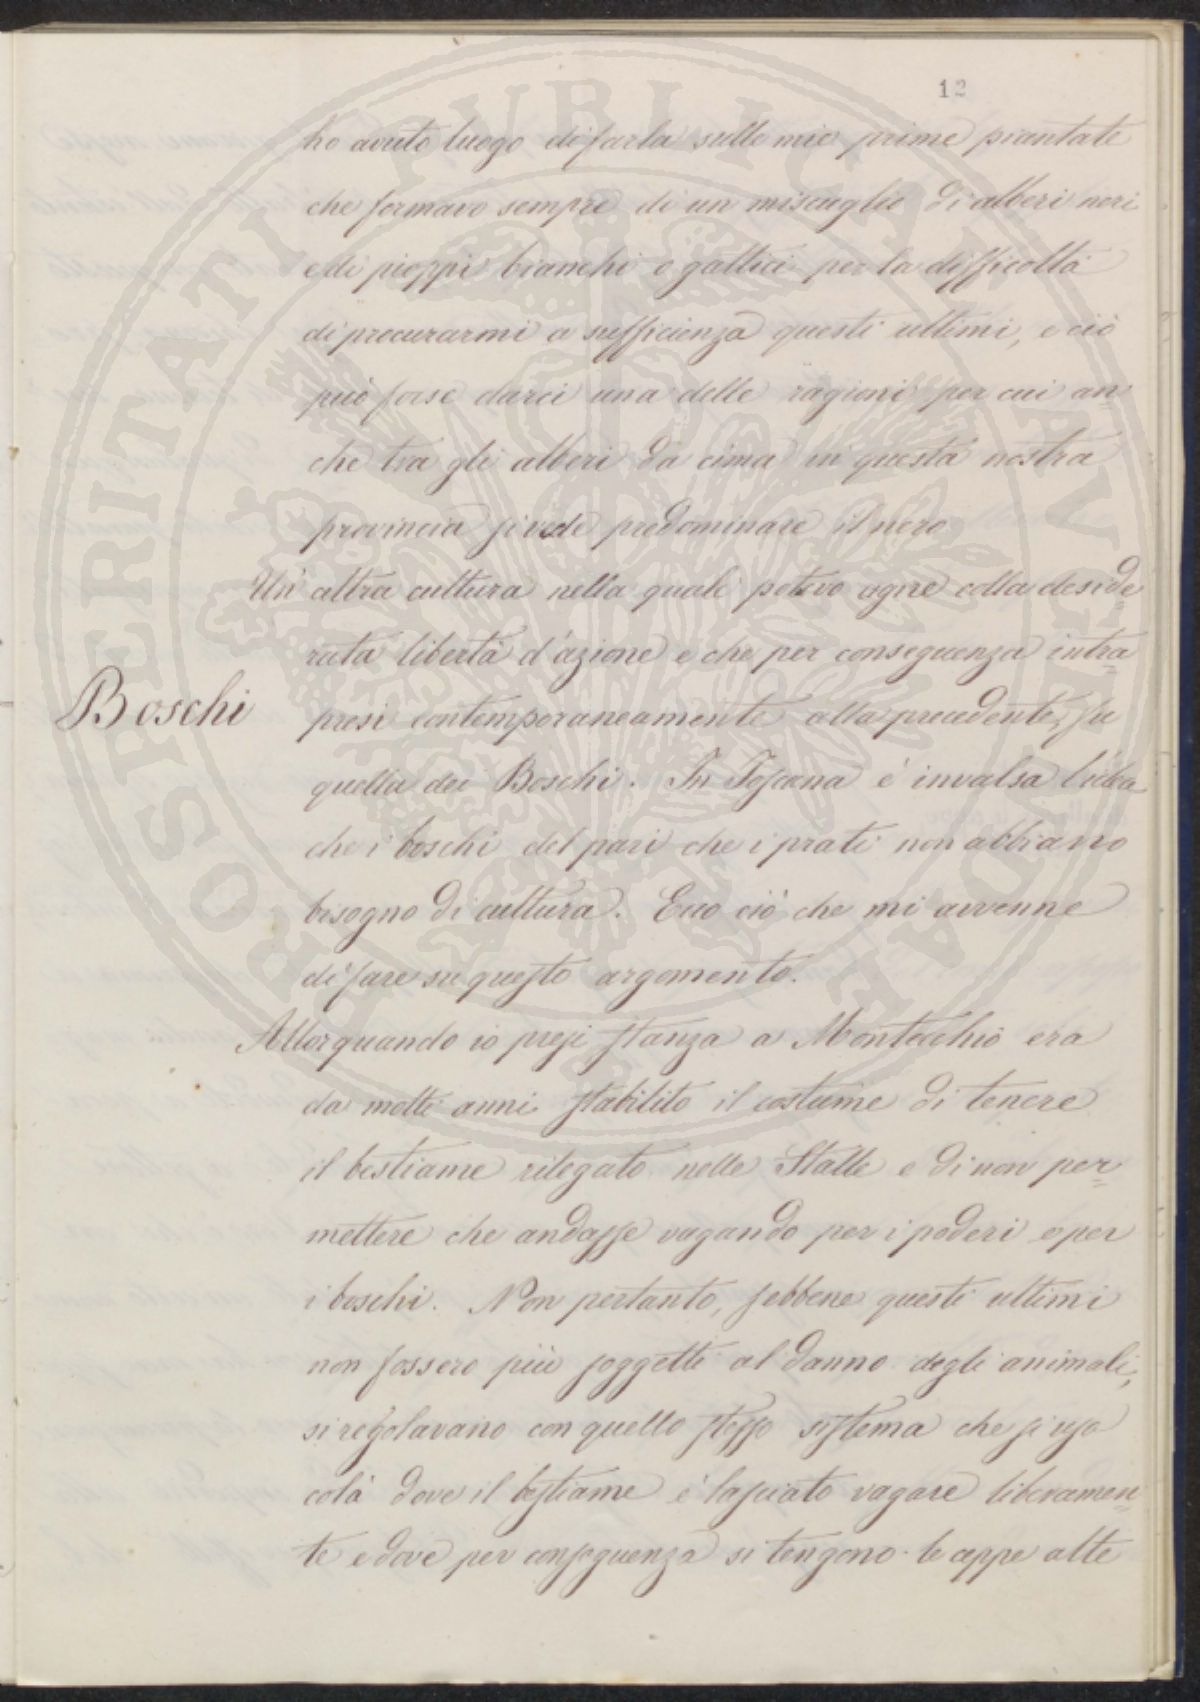 12
ho avuto luogo di farla sulle mie prime piantate
che formavo sempre di un miscuglio di alberi neri
e di pioppi bianchi o gattici per la difficoltà
di procurarmi a sufficienza questi ultimi, e ciò
può forse darci una delle ragioni per cui an
che tra gli alberi da cima in questa nostra
provincia si vede predominare il nero
Un' altra cultura nella quale potevo agire colla deside
rata libertà d'azione e che per conseguenza intra
Boschi
presi contemporaneamente alla precedente, fu
quella dei Boschi. In Toscana è invalsa l'idea
che i boschi del pari che i prati non abbiano
bisogno di cultura. Ecco ciò che mi avvenne
di fare su questo argomento.
Allorquando io presi stanza a Montecchio era
da molti anni stabilito il costume di tenere
il bestiame rilegato nelle Stalle e di non per
mettere che andasse vagando per i poderi e per
i boschi. Non pertanto, sebbene questi ultimi
non fossero più soggetti al danno degli animali,
si regolavano con quello stesso sistema che si usa
colà dove il bestiame è lasciato vagare liberamen
te e dove per conseguenza si tengono le ceppe alte
PROSPERITATI PUBLICAE AUGENDAE